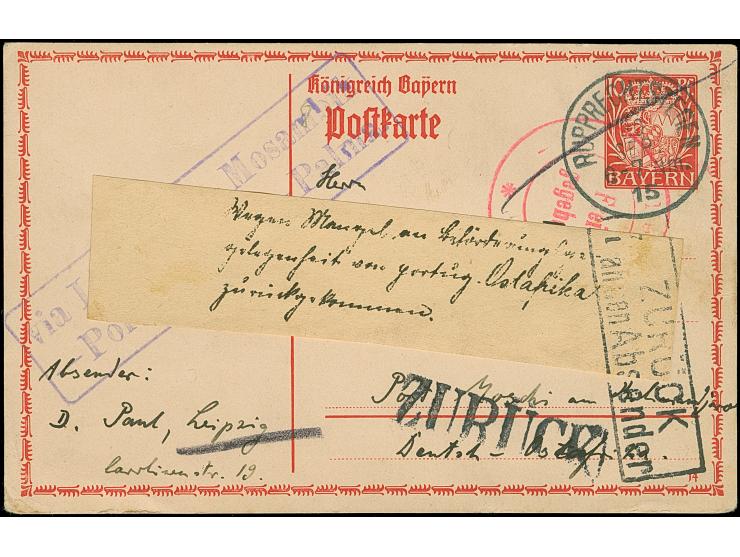 Königreich Bayern
Postkarte
10
BAYERN
15
Mosambik
Palma
via
Herrn
Wegen Mangel an Beförderungs
gelegenheit von portug. Ostafrika
zurückgekommen.
ZURÜCK
an den Absender
Absender:
D. Paul, Leipzig
Carolinenstr. 19.
Post Moschi am Kilimandjaro
ZURÜCK
Deutsch-Ostafrika.
14